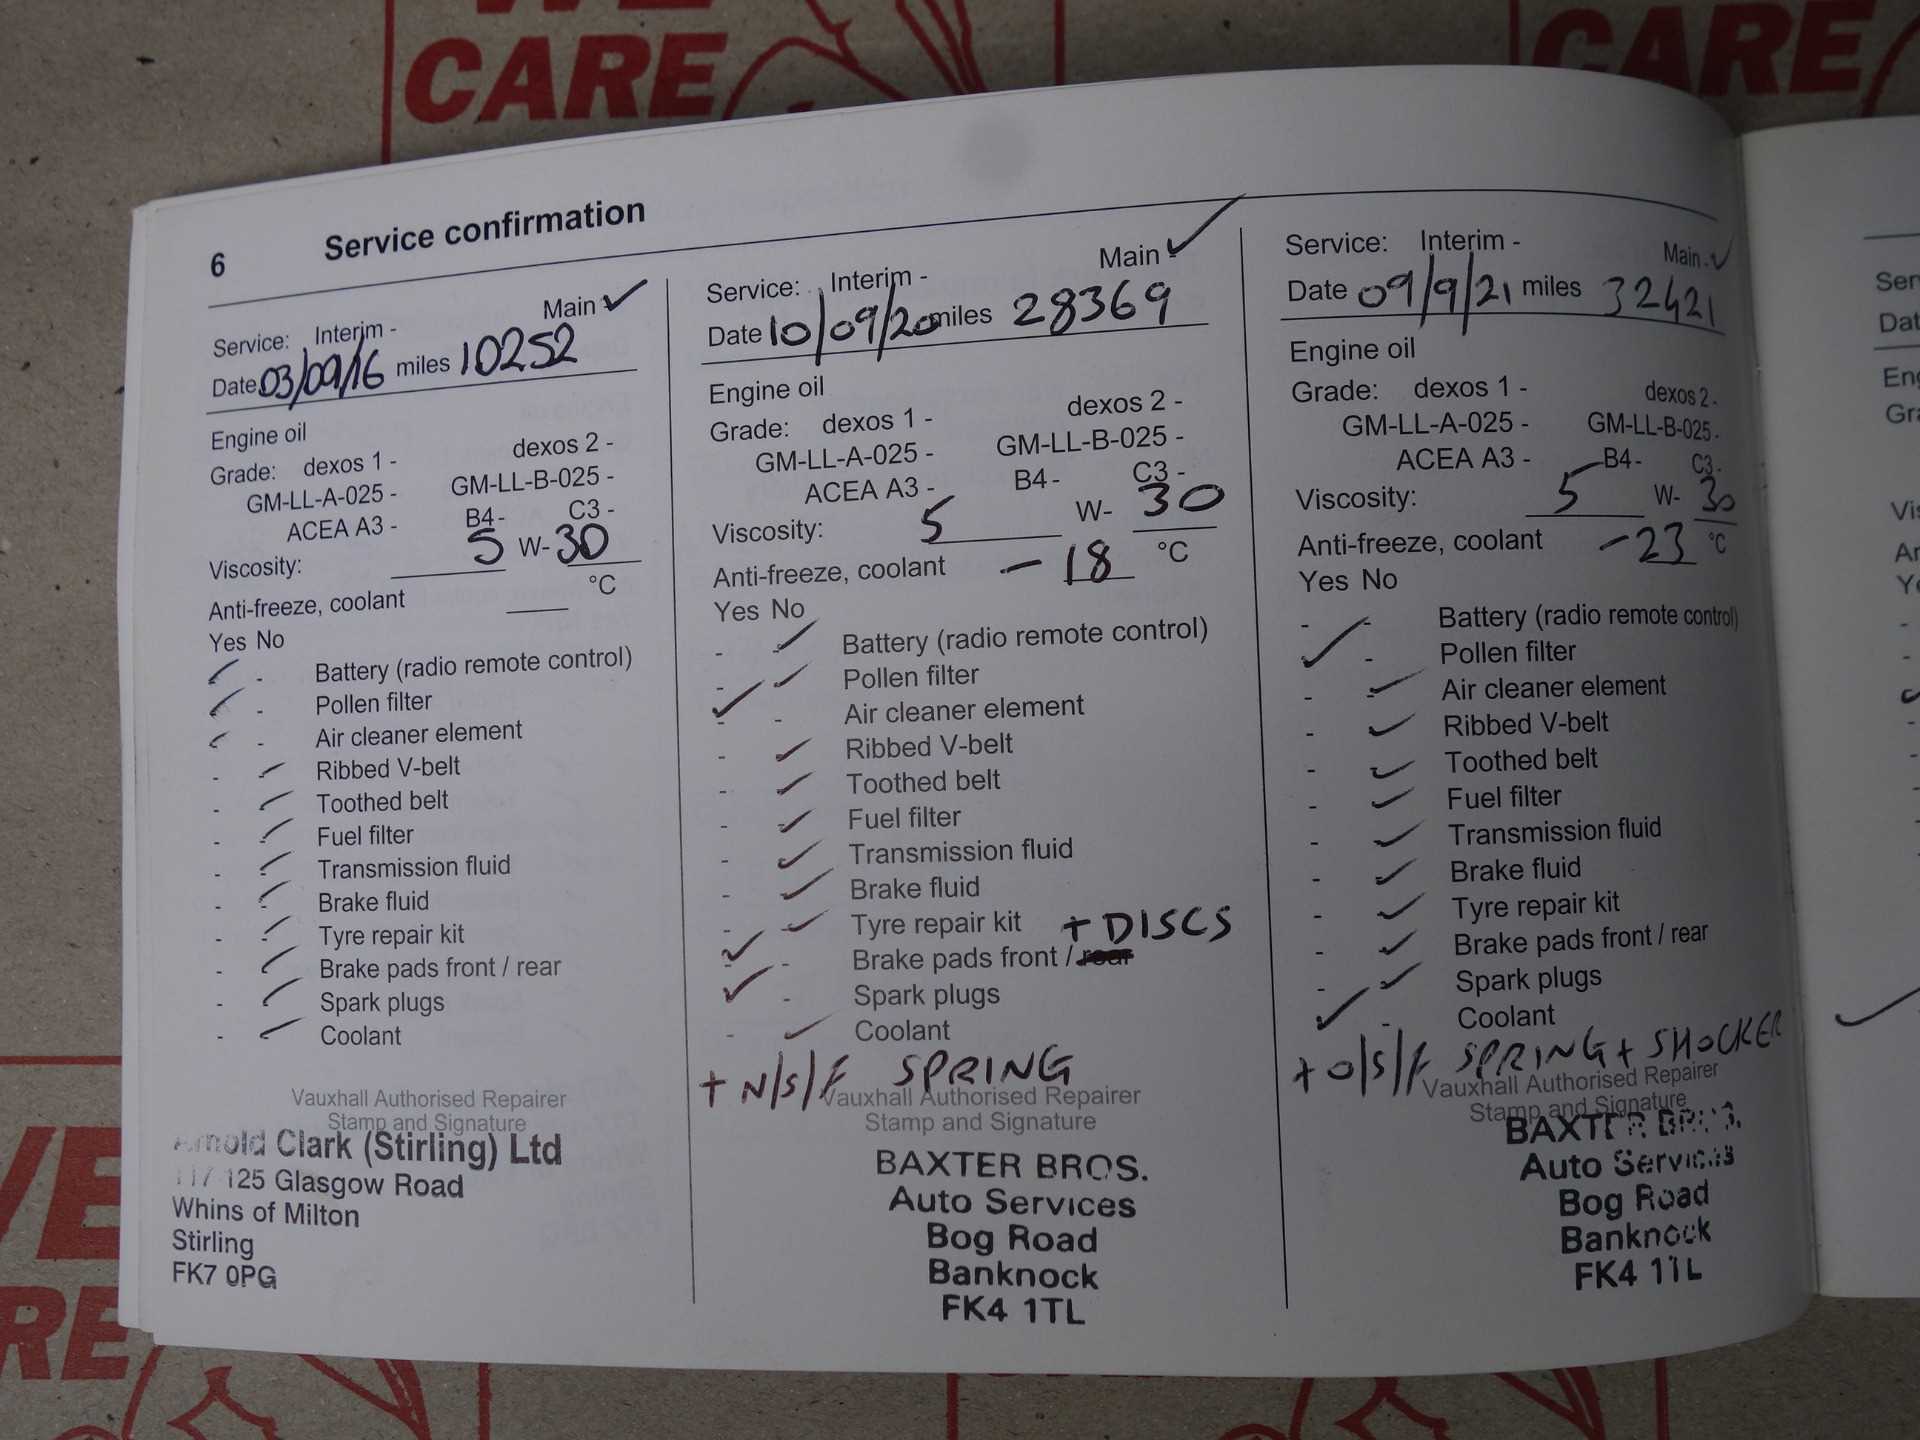 WE
CARE
CARE
6 Service confirmation
Service: Interim - Main - ✓
Date 03/09/16 miles 10252
Engine oil
Grade: dexos 1 - dexos 2 -
GM-LL-A-025 - GM-LL-B-025 -
ACEA A3 - B4 - C3 -
Viscosity: 5 W- 30
Anti-freeze, coolant °C
Yes No
✓ - Battery (radio remote control)
✓ - Pollen filter
✓ - Air cleaner element
- ✓ Ribbed V-belt
- ✓ Toothed belt
- ✓ Fuel filter
- ✓ Transmission fluid
- ✓ Brake fluid
- ✓ Tyre repair kit
- ✓ Brake pads front / rear
- ✓ Spark plugs
- ✓ Coolant
Vauxhall Authorised Repairer
Stamp and Signature
Arnold Clark (Stirling) Ltd
117 125 Glasgow Road
Whins of Milton
Stirling
FK7 0PG
Service: Interim - Main - ✓
Date 10/09/20 miles 28369
Engine oil
Grade: dexos 1 - dexos 2 -
GM-LL-A-025 - GM-LL-B-025 -
ACEA A3 - B4 - C3 -
Viscosity: 5 W- 30
Anti-freeze, coolant -18 °C
Yes No
- ✓ Battery (radio remote control)
- ✓ Pollen filter
✓ - Air cleaner element
- ✓ Ribbed V-belt
- ✓ Toothed belt
- ✓ Fuel filter
- ✓ Transmission fluid
- ✓ Brake fluid
- ✓ Tyre repair kit + DISCS
✓ - Brake pads front / rear
✓ - Spark plugs
- ✓ Coolant
+ N/S/F SPRING
Vauxhall Authorised Repairer
Stamp and Signature
BAXTER BROS.
Auto Services
Bog Road
Banknock
FK4 1TL
Service: Interim - Main - ✓
Date 09/9/21 miles 32421
Engine oil
Grade: dexos 1 - dexos 2 -
GM-LL-A-025 - GM-LL-B-025 -
ACEA A3 - B4 - C3 -
Viscosity: 5 W- 30
Anti-freeze, coolant -23 °C
Yes No
- - Battery (radio remote control)
✓ - Pollen filter
- ✓ Air cleaner element
- ✓ Ribbed V-belt
- ✓ Toothed belt
- ✓ Fuel filter
- ✓ Transmission fluid
- ✓ Brake fluid
- ✓ Tyre repair kit
- ✓ Brake pads front / rear
- ✓ Spark plugs
✓ - Coolant
+ O/S/F SPRING + SHOCKER
Vauxhall Authorised Repairer
Stamp and Signature
BAXTER BROS.
Auto Services
Bog Road
Banknock
FK4 1TL